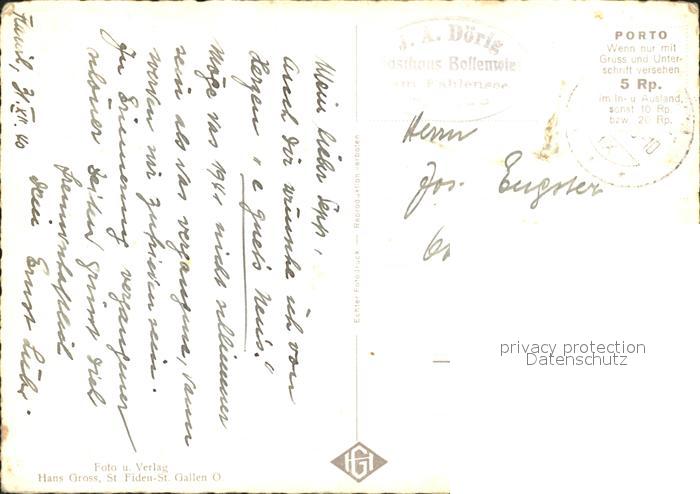 Flawil, 31. XII. 40
Mein lieber Sepp!
Auch dir wünsche ich von
Herzen "e guets Neus!"
Möge das 1941 nicht schlimmer
sein als das vergangene, dann
werden wir zufrieden sein.
In Erinnerung vergangener
schöner Zeiten grüsst dich
freundschaftlich
dein Ernst
Foto u. Verlag
Hans Gross, St. Fiden-St. Gallen O
HG
Echter Fotodruck — Reproduktion verboten
J. A. Dörig
Gasthaus Bollenwies
am Fählensee
PORTO
Wenn nur mit
Gruss und Unter-
schrift versehen
5 Rp.
im In- u. Ausland,
sonst 10 Rp.
bzw. 20 Rp.
Herrn
Jos. Eugster
privacy protection
Datenschutz